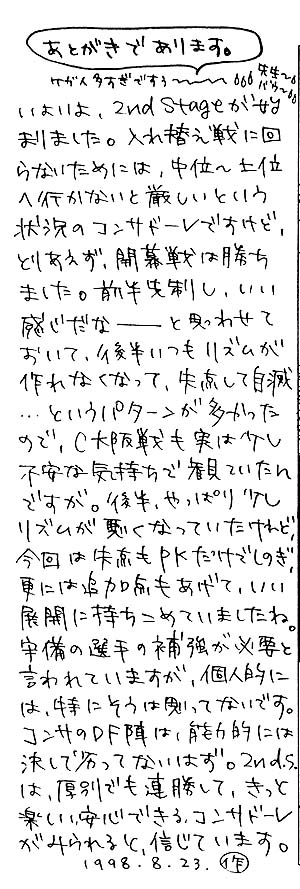 あとがきであります。
ケガ人多すぎですぅ〜〜〜
先生〜
いよいよ、2nd Stageが始
まりました。入れ替え戦に回
らないためには、中位〜上位
へ行かないと厳しいという
状況のコンサドーレですけど、
とりあえず、開幕戦は勝ち
ました。前半先制し、いい
感じだな――と思わせて
おいて、後半いつもリズムが
作れなくなって、失点して自滅
…というパターンが多かった
ので、C大阪戦も実は少し
不安な気持ちで観ていたん
ですが。後半、やっぱり少し
リズムが悪くなっていたけれど、
今回は失点もPKだけでしのぎ、
更には追加点もあげて、いい
展開に持ちこめていましたね。
守備の選手の補強が必要と
言われていますが、個人的に
は、特にそうは思ってないです。
コンサのDF陣は、能力的には
決して劣ってないはず。2nd.S.
は、厚別でも連勝して、きっと
楽しい、安心できる、コンサドーレ
がみられると、信じています。
1998.8.23. 作